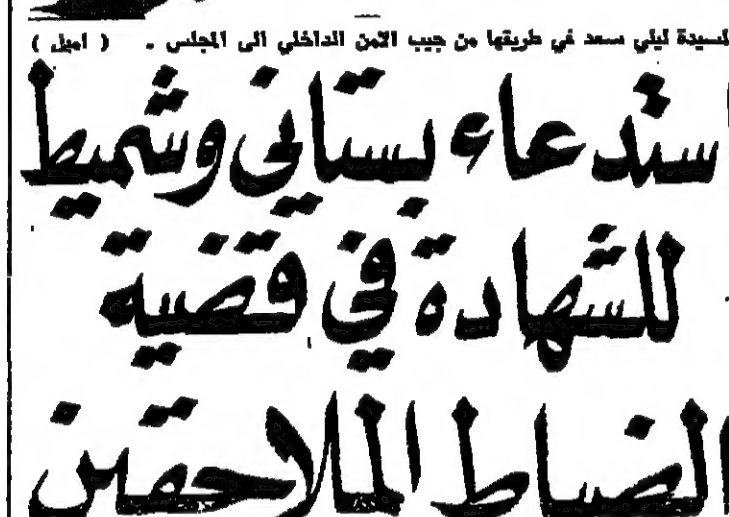 السيدة ليلي سعد في طريقها من جيب الامن الداخلي الى المجلس . ( اميل )
استدعاء بستاني وشميط
للشهادة في قضية
الضباط الملاحقين